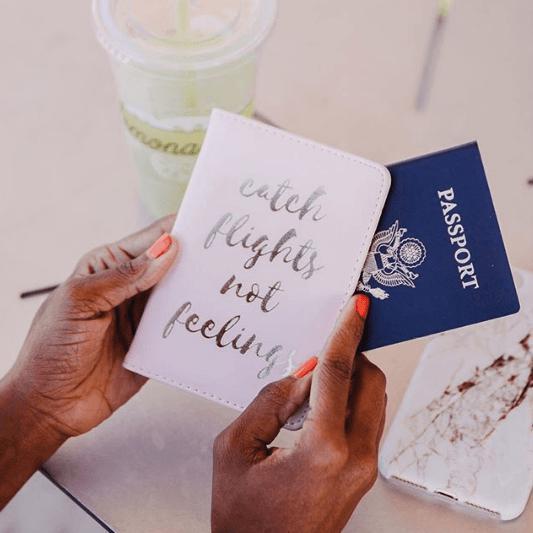 catch
flights
not
feelings
PASSPORT